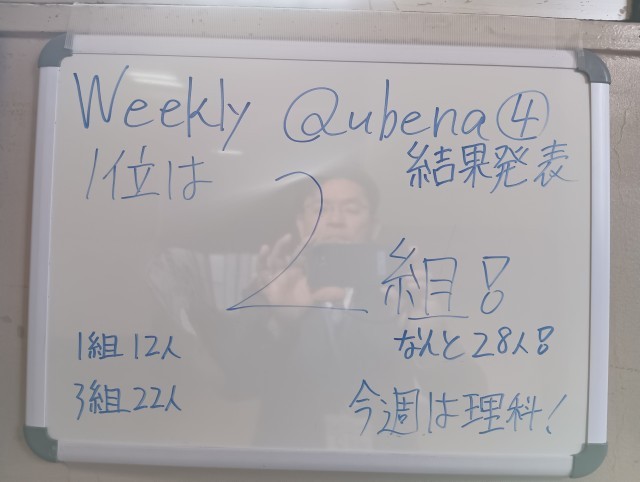 Weekly Qubena④
結果発表
1位は
2組!
なんと28人!
1組12人
3組22人
今週は理科!